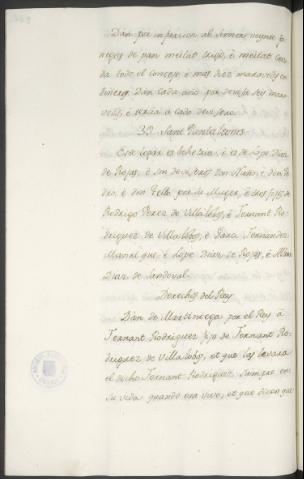 Dan por infurcion al Sennor veynte fa-
negas de pan meitat trigo, è meitat ceva-
da todo el concejo, è mas diez maravedis en
dineros. Dan cada año por
vedis, è servicio à cada devisero.
32. Sant
Este logar es behetria, è es de Lope Diaz
de Rojas, è son deviseros Don Nuño, è Don Pe-
dro, è Don Tello por su Muger, è los fijos de
Rodrigo Perez de Villalobos, è Fernant Ro-
driguez de Villalobos, è Garci Fernandez
Manrrique, è Lope Diaz de Rojas, è Alvar
Diaz de Sandoval.
Derechos del Rey
Dan de Martiniega por el Rey à
Fernant Rodriguez fijo de Fernant Ro-
driguez de Villalobos, et que las levara
el dicho Fernant Rodriguez siempre en
su vida quando era vivo, et que dicen que